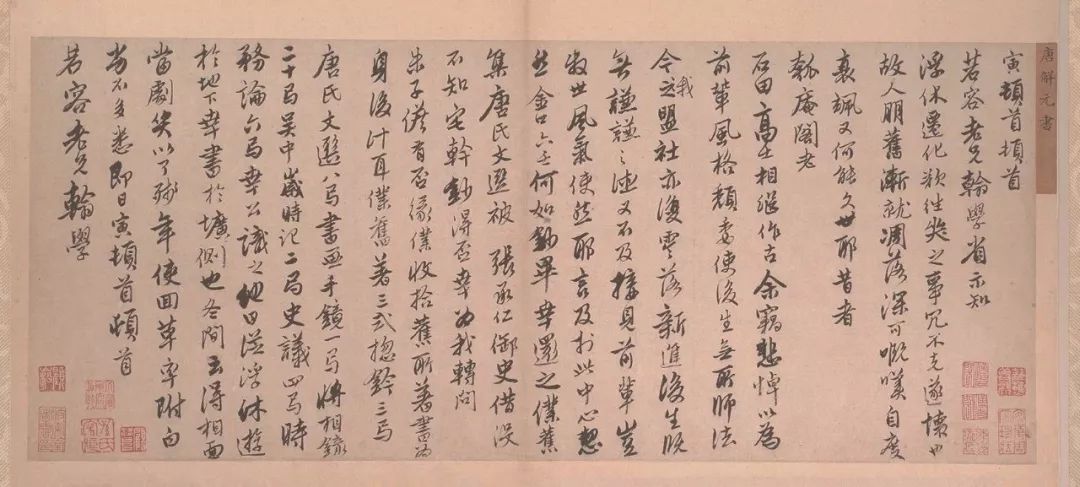 唐解元書
寅頓首頓首
若容老兄翰學省示知
浮休遷化欲往之事冗不克遂懷也
故人朋舊漸就凋落深可慨嘆自度
衰颯又何能久世耶昔者
瓠庵閣老
石田高士相繼作古余竊悲悼以為
前輩風格頹委使後生無所師法
今之我盟社亦復零落新進後生既
無謙謙之德又不及接見前輩豈
叔世風氣使然耶言及於此中心愁
然金口六壬何如鈔畢幸還之僕舊
集唐氏文選被張承仁御史借沒
不知宅幹鈔得否幸為我轉問
朱子儋有否緣僕收拾舊所著書為
身後計耳僕舊著三式總鈐三卷
唐氏文選八卷書畫手鏡一卷將相錄
二十卷吳中歲時記二卷史議四卷時
務論六卷幸公識之他日從浮休遊
於地下幸書於壙側也冬間云得相面
當劇笑以了殘年使回草率附白
尚不多悉即日寅頓首頓首
若容老兄翰學